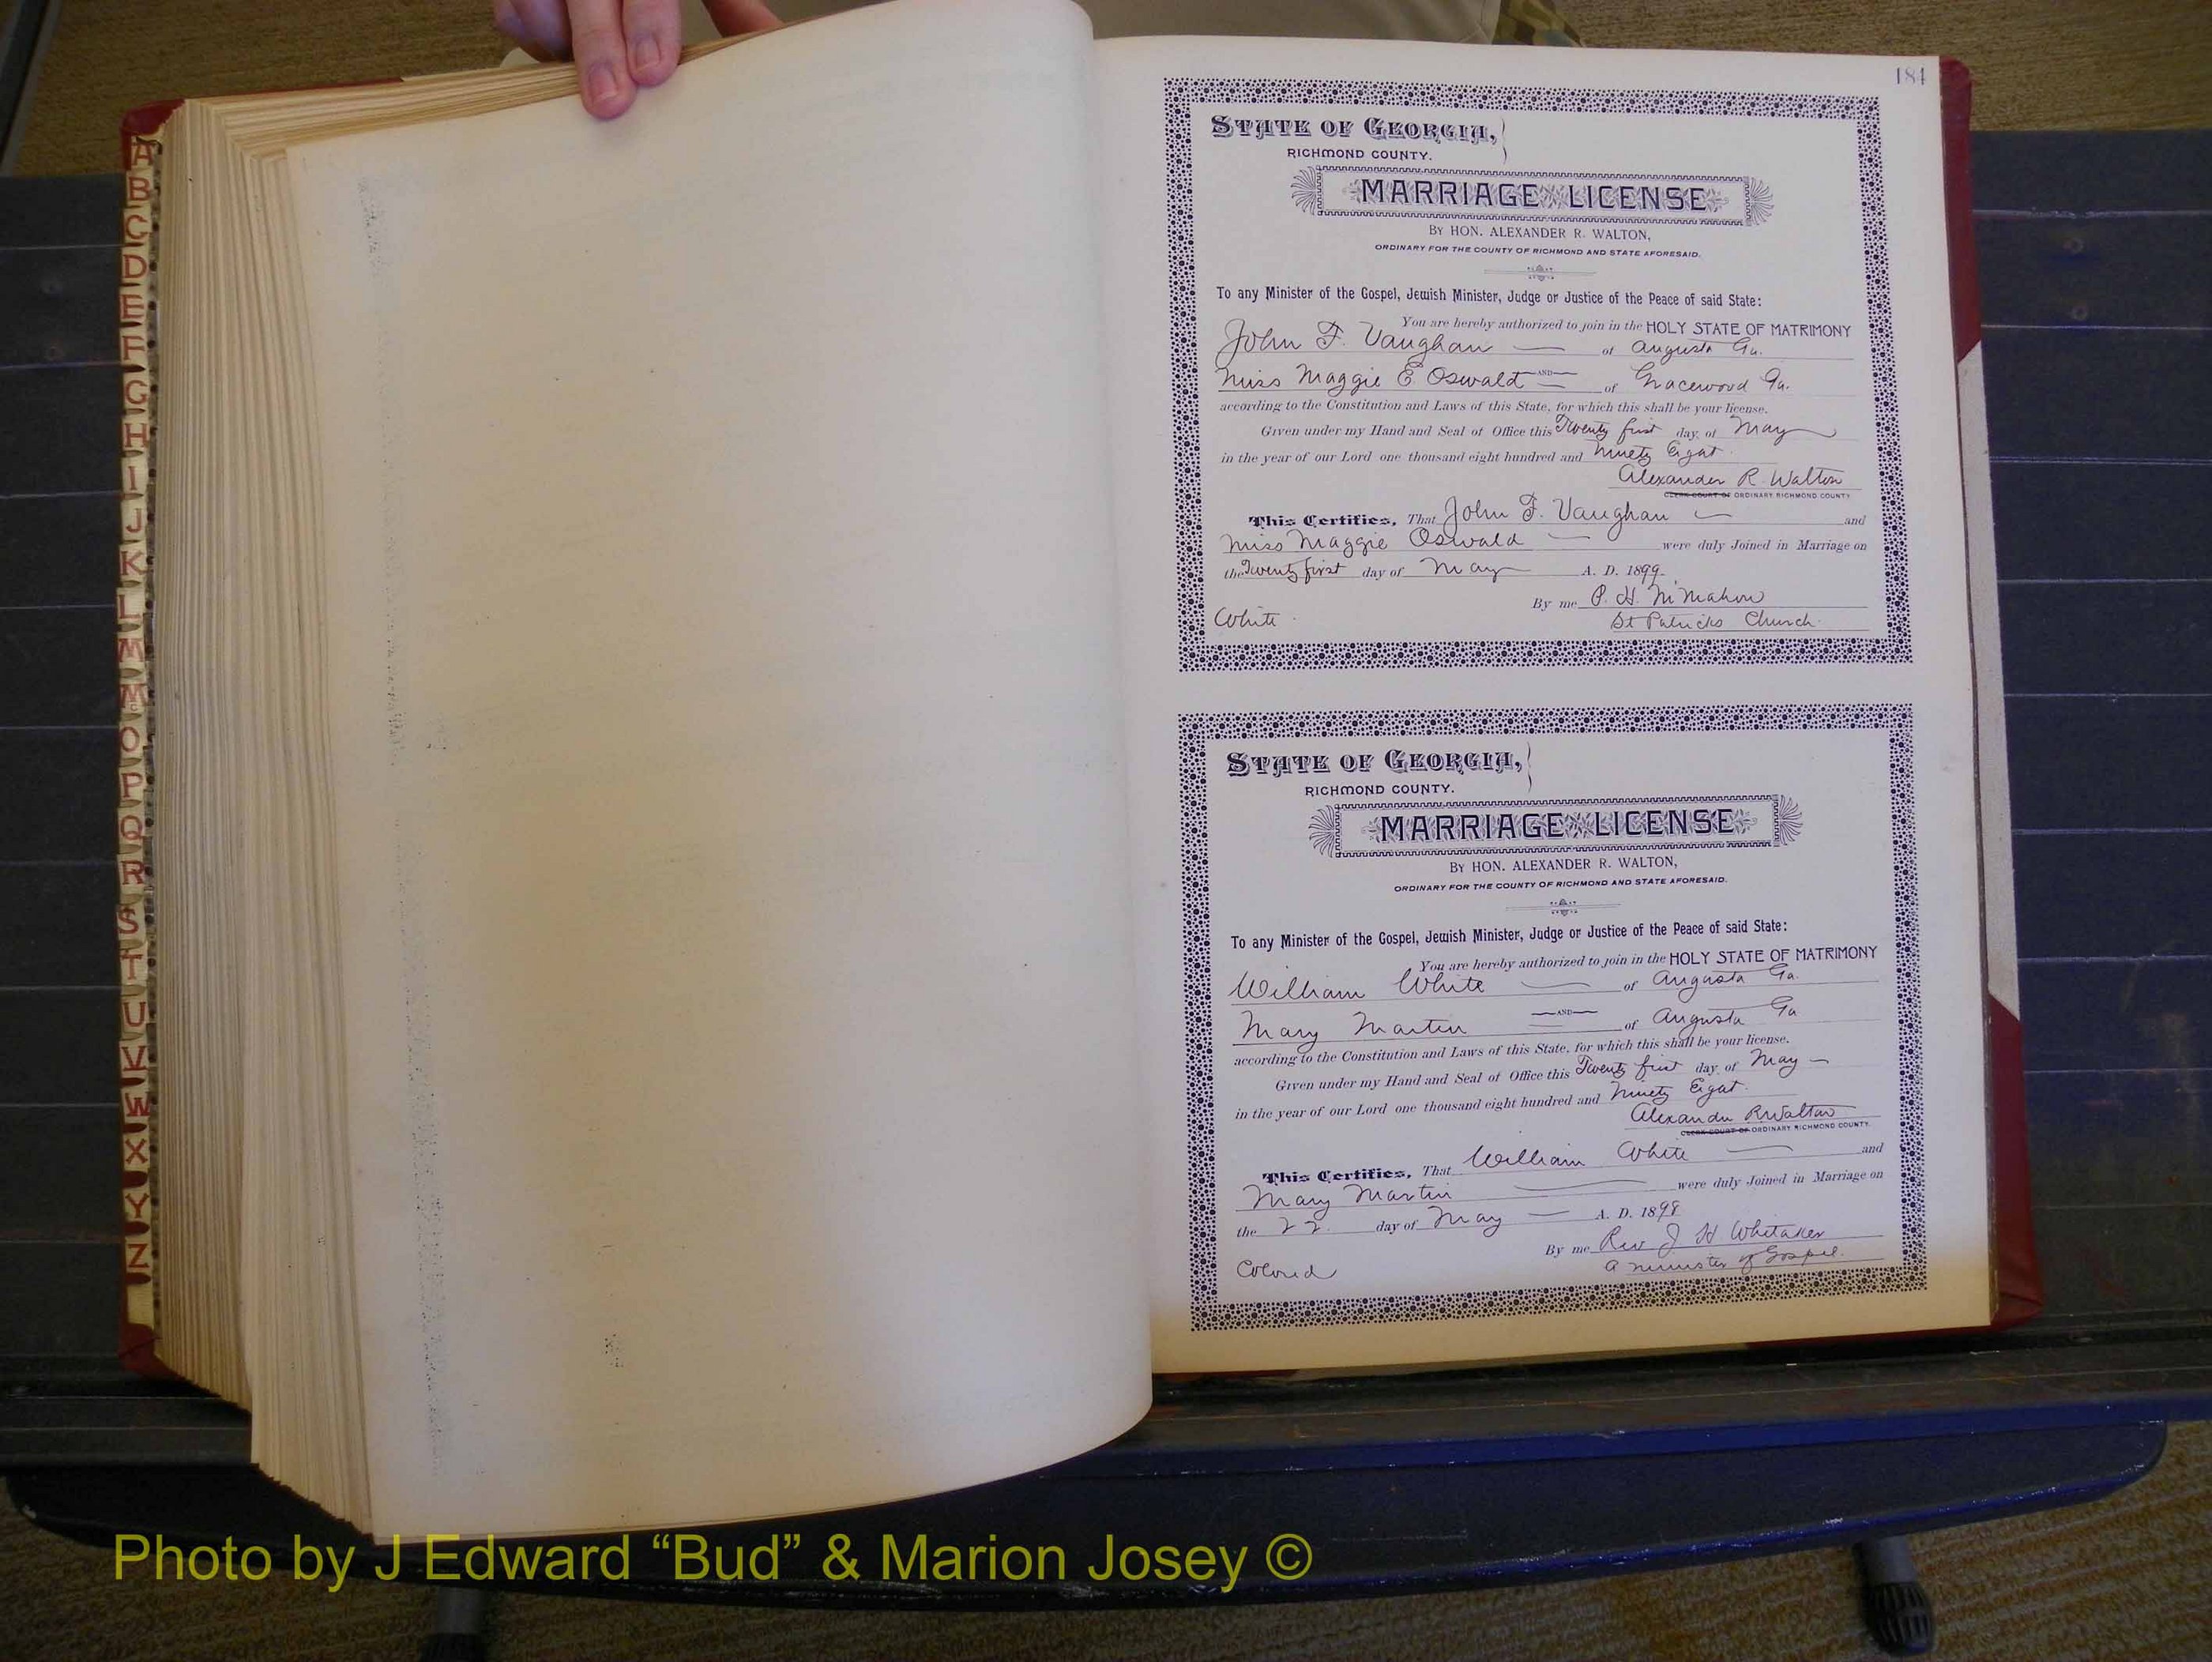 A
B
C
D
E
F
G
H
I
J
K
L
M
Mc
O
P
Q
R
S
T
U
V
W
X
Y
Z
184
STATE OF GEORGIA,
RICHMOND COUNTY.
MARRIAGE LICENSE
BY HON. ALEXANDER R. WALTON,
ORDINARY FOR THE COUNTY OF RICHMOND AND STATE AFORESAID.
To any Minister of the Gospel, Jewish Minister, Judge or Justice of the Peace of said State:
You are hereby authorized to join in the HOLY STATE OF MATRIMONY
John F. Vaughan of Augusta Ga.
AND
Miss Maggie E Oswald of Gracewood Ga.
according to the Constitution and Laws of this State, for which this shall be your license.
Given under my Hand and Seal of Office this Twenty first day of May
in the year of our Lord one thousand eight hundred and Ninety Eight.
Alexander R. Walton
CLERK COURT OF ORDINARY RICHMOND COUNTY
This Certifies, That John F. Vaughan and
Miss Maggie Oswald were duly Joined in Marriage on
the Twenty first day of May A. D. 1899.
By me P. H. McMahon
White. St Patricks Church.
STATE OF GEORGIA,
RICHMOND COUNTY.
MARRIAGE LICENSE
BY HON. ALEXANDER R. WALTON,
ORDINARY FOR THE COUNTY OF RICHMOND AND STATE AFORESAID.
To any Minister of the Gospel, Jewish Minister, Judge or Justice of the Peace of said State:
You are hereby authorized to join in the HOLY STATE OF MATRIMONY
William White of Augusta Ga.
AND
Mary Martin of Augusta Ga
according to the Constitution and Laws of this State, for which this shall be your license.
Given under my Hand and Seal of Office this Twenty first day of May
in the year of our Lord one thousand eight hundred and Ninety Eight.
Alexander R Walton
CLERK COURT OF ORDINARY RICHMOND COUNTY.
This Certifies, That William White and
Mary Martin were duly Joined in Marriage on
the 22. day of May A. D. 1898
By me Rev J H Whitaker
Colored a minister of Gospel.
Photo by J Edward “Bud” & Marion Josey ©